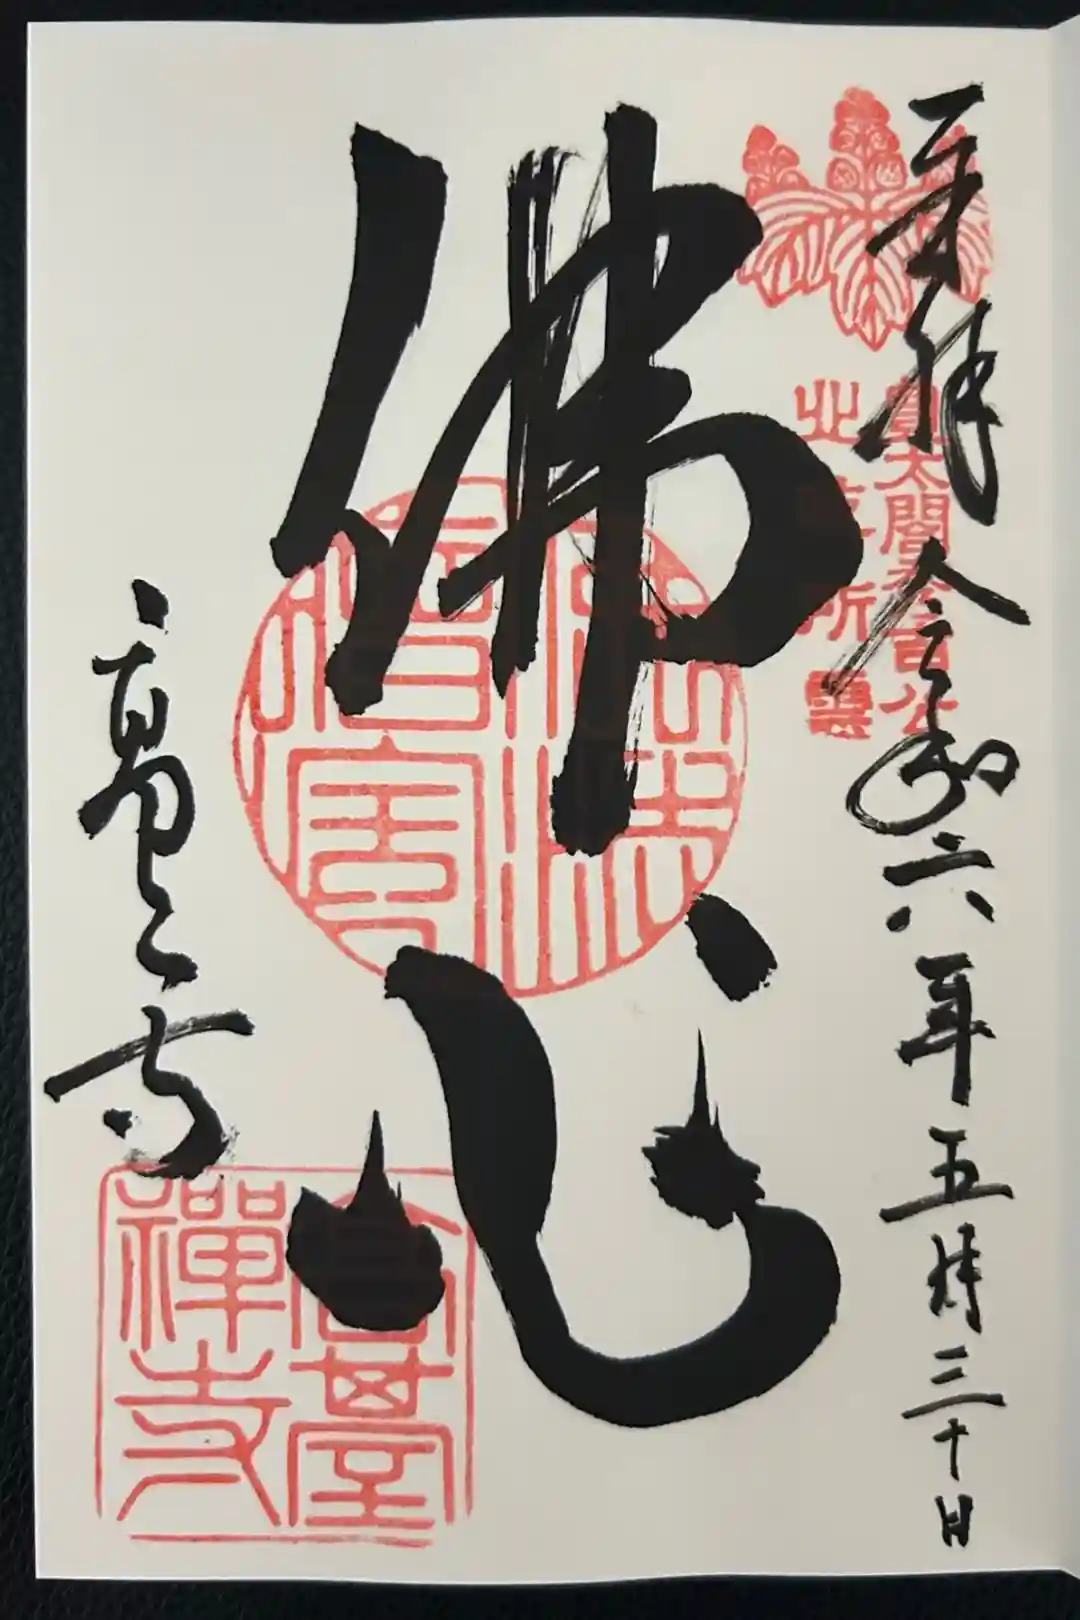 奉拝 令和六年五月三十日
太閤秀吉公
北政所
佛心
佛法僧寶
高台寺
高臺禪寺